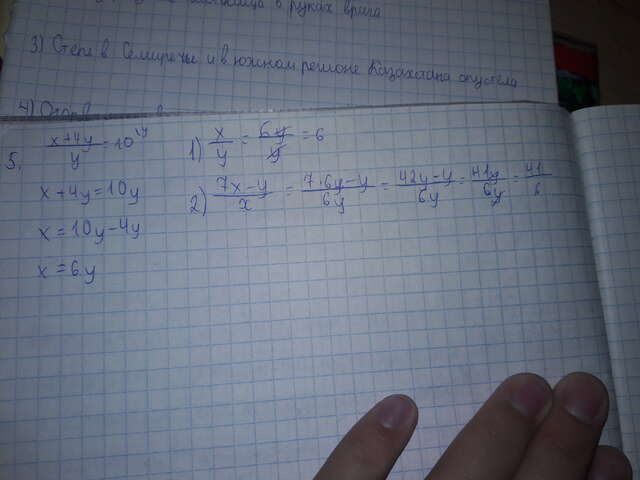 в руках врага
3) Степь в Семиречье и в южном регионе Казахстана опустела
4)
5. (x+4y)/y = 10 \y
x+4y=10y
x=10y-4y
x=6y
1) x/y = 6y/y = 6
2) (7x-y)/x = (7·6y-y)/6y = (42y-y)/6y = 41y/6y = 41/6